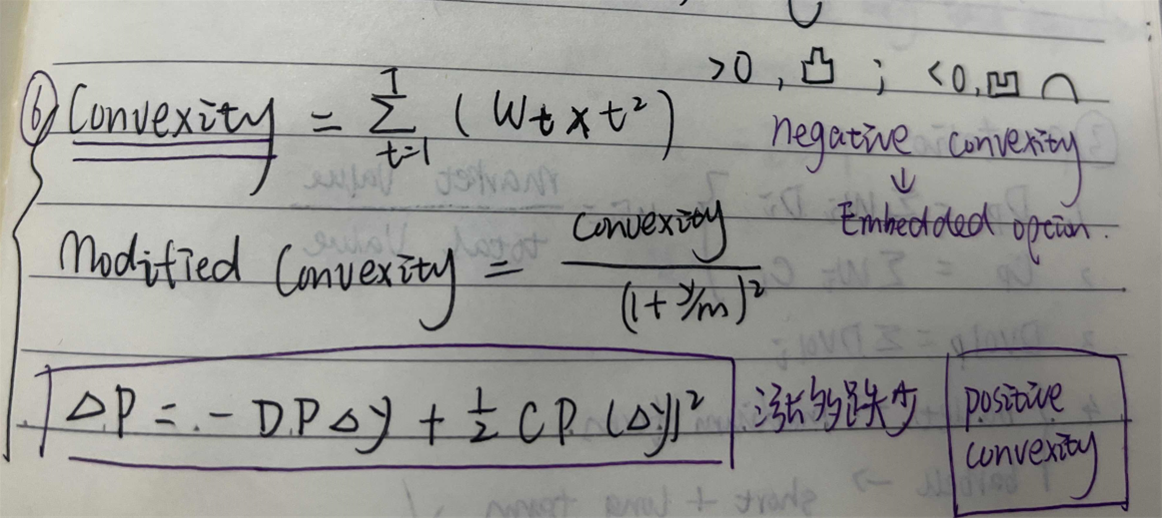 >0, 凸 ; <0, 凹 ∩
⑥ Convexity = Σ_{t=1}^{T} (Wt × t²)
negative convexity
↓
Embedded option.
Modified Convexity = convexity / (1 + y/m)²
ΔP = - D.P Δy + 1/2 C P. (Δy)²
涨多跌少
positive
convexity